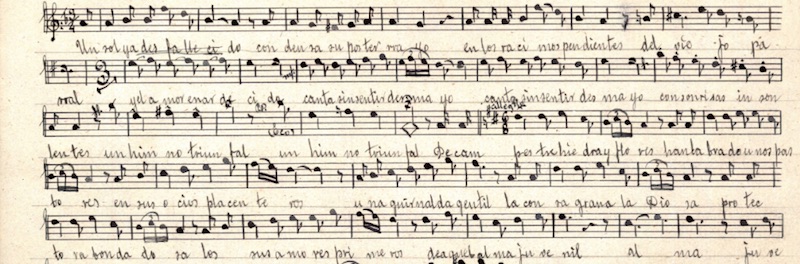 Un sol ya des fa lle ci do con den sa su pos ter ra yo en los ra ci mos pendientes del vie jo pa
rral y el a mor enar de ci do canta sin sentir desma yo canta sin sentir des ma yo con sonrisas in son
lentes un him no triun fal un him no triun fal De cam pos tre hie dra y flo res han la bra do u nos pas
to res en sus o cios placen te ros u na guirnalda gentil la con sa gran a la Dio sa pro tec
to ra bonda do sa los sus a mo res pri me ros de aquel al ma ju ve nil al ma ju ve